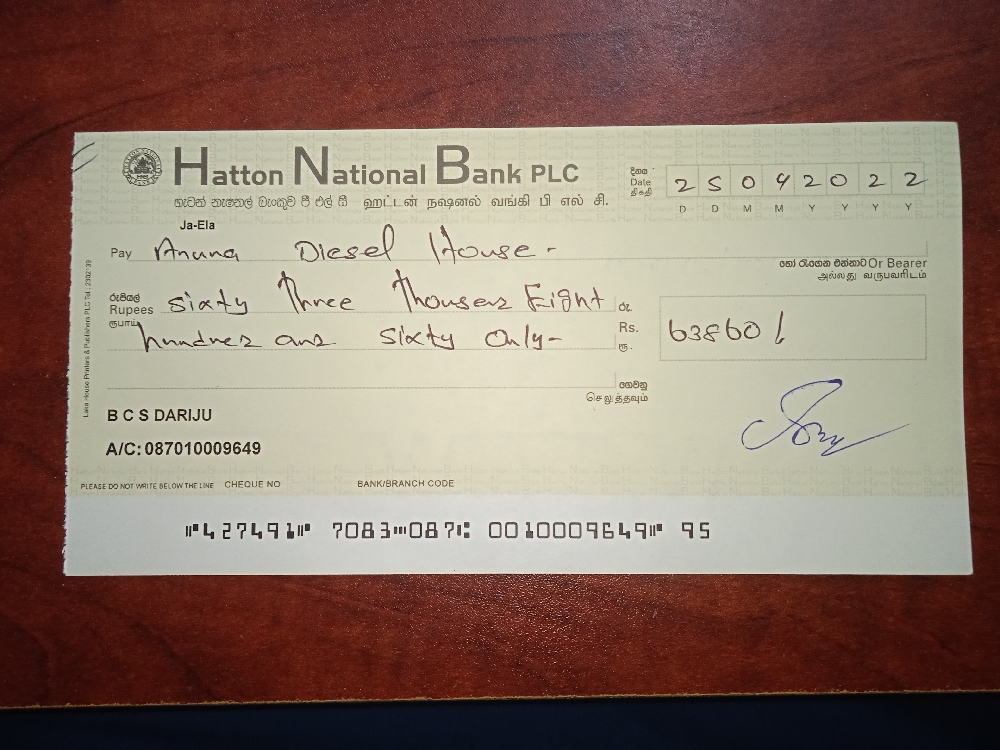 Hatton National Bank PLC
හැටන් නැෂනල් බැංකුව පී එල් සී ஹட்டன் நஷனல் வங்கி பி எல் சி.
Ja-Ela
දිනය
Date
திகதி
2 5 0 4 2 0 2 2
D D M M Y Y Y Y
Pay Anuna Diesel House -
හෝ රැගෙන එන්නාට Or Bearer
அல்லது வருபவரிடம்
රුපියල්
Rupees
ரூபாய்
Sixty Three Thousand Eight
hundred and Sixty Only-
රු.
Rs.
ரூ.
63860/
ගෙවනු
செலுத்தவும்
B C S DARIJU
A/C: 087010009649
PLEASE DO NOT WRITE BELOW THE LINE CHEQUE NO BANK/BRANCH CODE
⑈427491⑈ 7083⑉087⑆ 0010009649⑈ 95
Lake House Printers & Publishers PLC Tel : 2302139